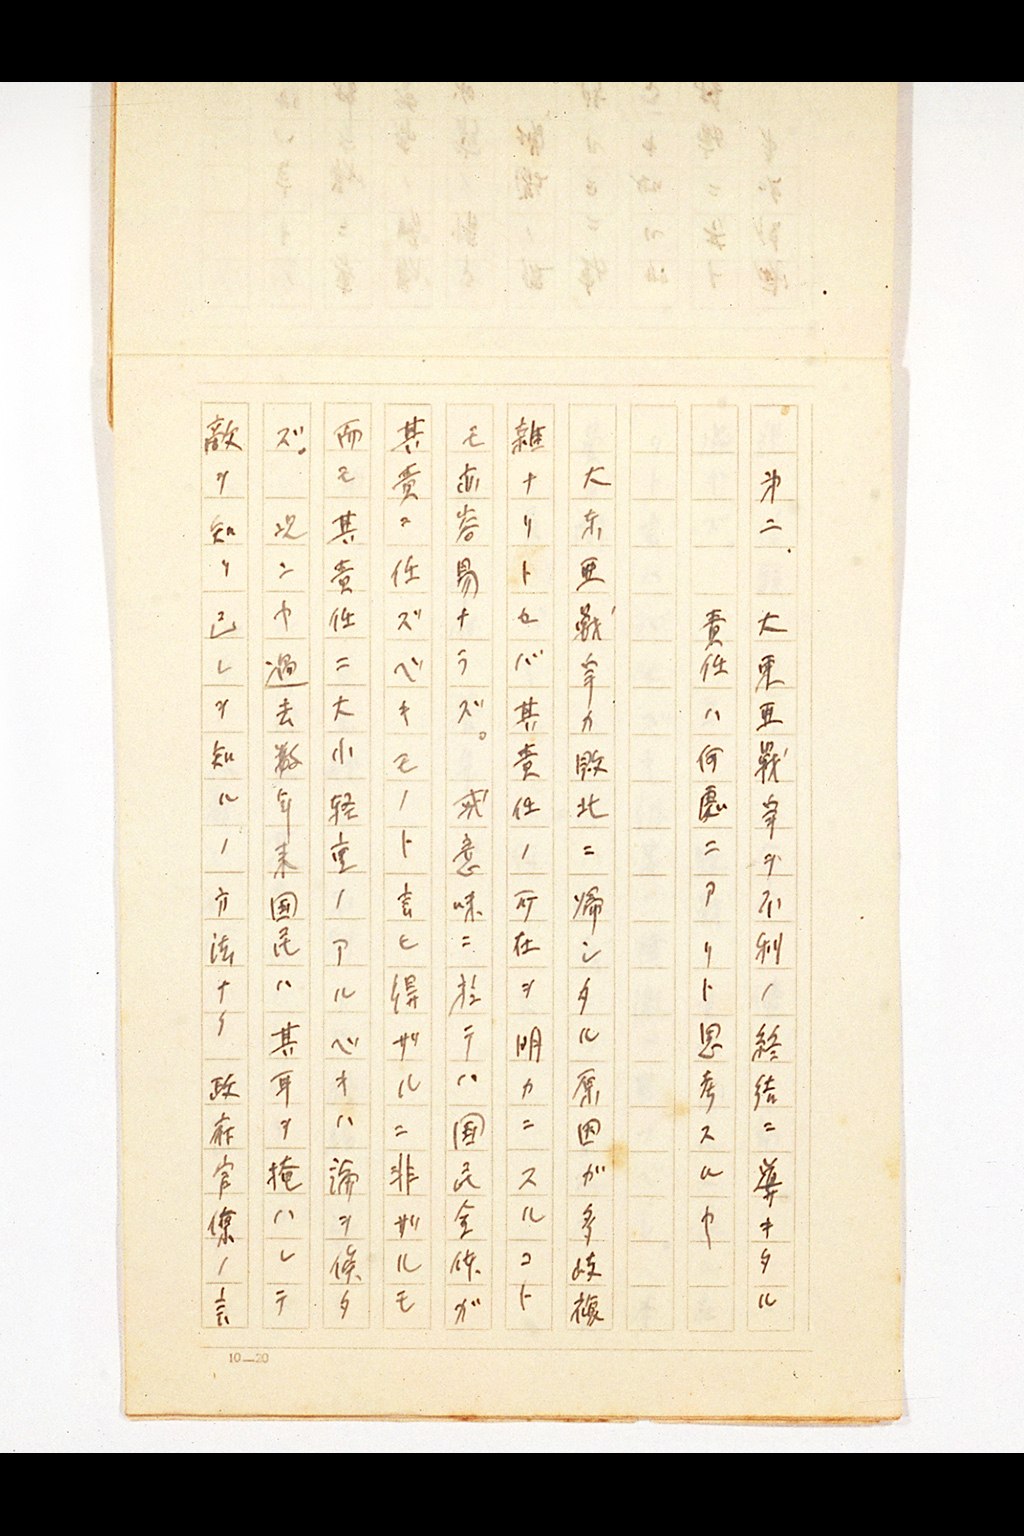 第二、大東亜戦争ヲ不利ノ終結ニ導キタル
責任ハ何処ニアリト思考スルヤ
大東亜戦争カ敗北ニ帰シタル原因ガ多岐複
雑ナリトセバ其責任ノ所在ヲ明カニスルコト
モ亦容易ナラズ。或意味ニ於テハ国民全体ガ
其責ニ任ズベキモノト言ヒ得ザルニ非ザルモ
而モ其責任ニ大小軽重ノアルベキハ論ヲ俟タ
ズ。況ンヤ過去数年来国民ハ其耳ヲ掩ハレテ
敵ヲ知リ己レヲ知ルノ方法ナク政府官僚ノ言
10—20